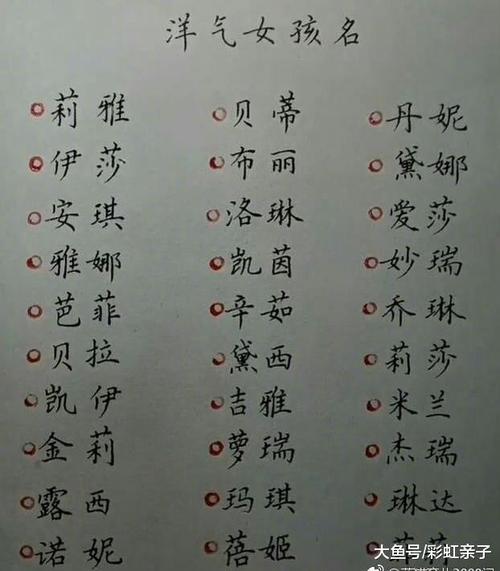 洋气女孩名
莉雅 贝蒂 丹妮
伊莎 布丽 黛娜
安琪 洛琳 爱莎
雅娜 凯茵 妙瑞
芭菲 辛茹 乔琳
贝拉 黛西 莉莎
凯伊 吉雅 米兰
金莉 萝瑞 杰瑞
露西 玛琪 琳达
诺妮 蓓姬
大鱼号/彩虹亲子